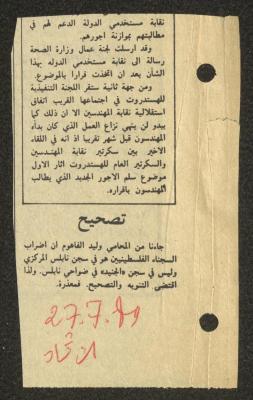 نقابة مستخدمي الدولة الدعم لهم في
مطالبتهم بموازنة اجورهم.
وقد ارسلت لجنة عمال وزارة الصحة
رسالة الى نقابة مستخدمي الدولة بهذا
الشأن بعد ان اتخذت قرارا بالموضوع.
ومن جهة ثانية ستقر اللجنة التنفيذية
للهستدروت في اجتماعها القريب اتفاق
استقلالية نقابة المهندسين الا ان ذلك كما
يبدو لن ينهي نزاع العمل الذي كان بدأه
المهندسون قبل شهر تقريبا اذ انه في اللقاء
الاخير بين سكرتير نقابة المهندسين
والسكرتير العام للهستدروت اثار الاول
موضوع سلم الاجور الجديد الذي يطالب
المهندسون باقراره.
تصحيح
جاءنا من المحامي وليد الفاهوم ان اضراب
السجناء الفلسطينيين هو في سجن نابلس المركزي
وليس في سجن «الجنيد» في ضواحي نابلس. ولذا
اقتضى التنويه والتصحيح. فمعذرة.
27.7.89
الاتحاد